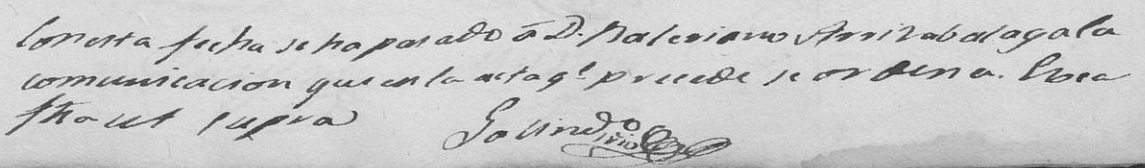 Con esta fecha se ha pasado á D. Valeriano Arrizabalaga la
comunicacion que en la acta q.e precede se ordena.
fha ut supra
Galindo